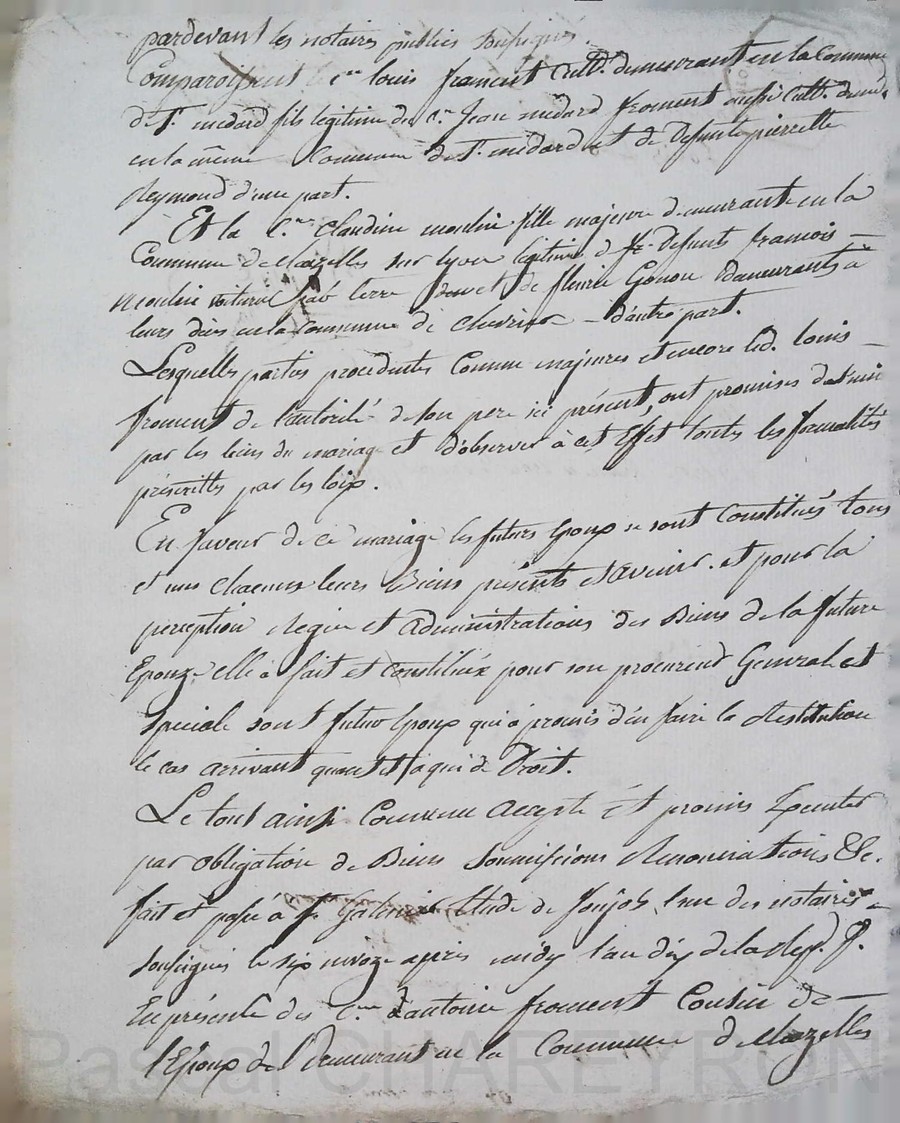 pardevant les notaires publics soussignés
Comparoissent Cen louis froment Cultr demeurant en la Commune
de St medard fils légitime du Cn Jean médard froment aussi Cultr demt
en la même Commune de St medard et de Defunte pierrette
Reymond d'une part.
Et la Cne Claudine moulin fille majeure demeurante en la
Commune de Chazelles sur Lyon légitime de Defunts francois
moulin voiturié par terre et de fleurie Gonon demeurants à
leurs décès en la Commune de chevrier d'autre part.
Lesquelles parties procédantes Comme majeures et encore led. louis
froment de l'autorité de son pere ici présent, ont promises de s'unir
par les liens du mariage et d'observer à cet Effet toutes les formalités
préscrittes par les loix.
En faveur de ce mariage les futurs Epoux se sont Constitués tous
et uns chacuns leurs Biens présents et avenir. et pour la
perception Regie et administrations des Biens de la future
Epouze elle a fait et constitué pour son procureur General et
Spécial sont futur Epoux qui a promis d'en faire la Restitution
le cas arrivant quand et a qui de Droit.
Le tout ainsi Convenu accepté et promis Executer
par obligation de Biens Soumissions Renonciations &c.
fait et passé à St Galmier Etude de l'un des notaires
soussignés le six nivoze après midy l'an dix de la Rep. f.
En présence des Cens antoine froment Cousin de
l'Epoux demeurant en la Commune de Chazelles
Pascal CHAREYRON